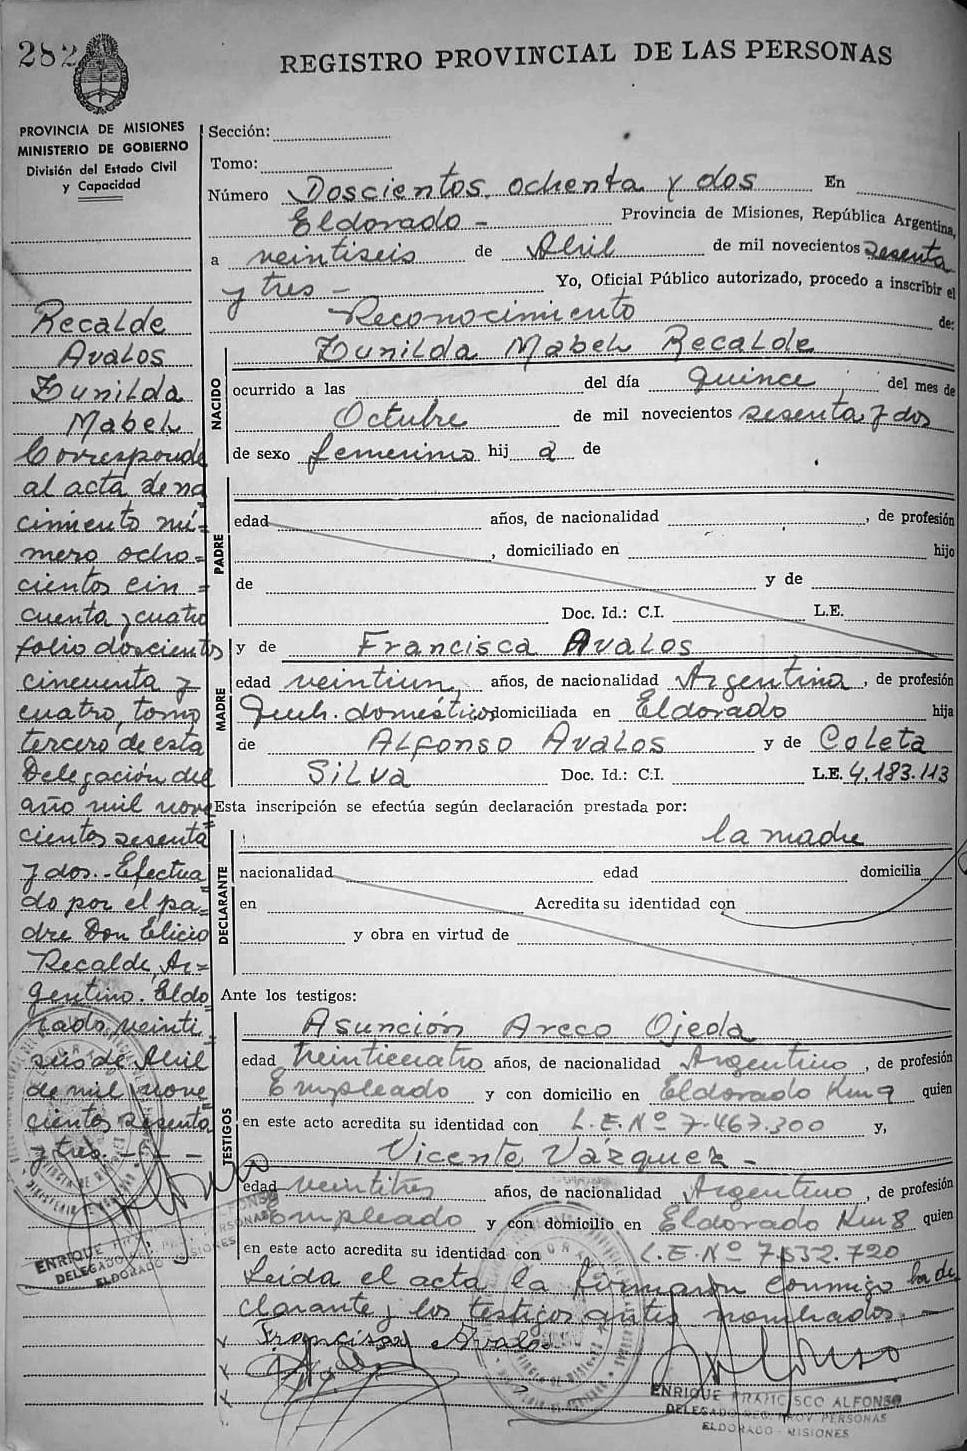 282
REGISTRO PROVINCIAL DE LAS PERSONAS
PROVINCIA DE MISIONES
MINISTERIO DE GOBIERNO
División del Estado Civil
y Capacidad
Recalde
Avalos
Zunilda
Mabel
Corresponde
al acta de na
cimiento nú-
mero ocho=
cientos cin=
cuenta y cuatro
folio doscientos
cincuenta y
cuatro, tomo
tercero de esta
Delegación del
año mil nove=
cientos sesenta
y dos.- Efectua
do por el pa=
dre Don Elicio
Recalde, Ar=
gentino. Eldo
rado, veinti
seis de Abril
de mil nove=
cientos sesenta
y tres.-
ENRIQUE
DELEGADO
ELDORADO
Sección:
Tomo:
Número Doscientos ochenta y dos En
Eldorado - Provincia de Misiones, República Argentina,
a veintiseis de Abril de mil novecientos sesenta
y tres - Yo, Oficial Público autorizado, procedo a inscribir el
Reconocimiento de:
NACIDO
Zunilda Mabel Recalde
ocurrido a las del día quince del mes de
Octubre de mil novecientos sesenta y dos
de sexo femenino hij a de
PADRE
edad años, de nacionalidad , de profesión
, domiciliado en hijo
de y de
Doc. Id.: C.I. L.E.
MADRE
y de Francisca Avalos
edad veintiun, años, de nacionalidad Argentina, de profesión
Queh. domésticos domiciliada en Eldorado hija
de Alfonso Avalos y de Coleta
Silva Doc. Id.: C.I. L.E. 4.183.113
Esta inscripción se efectúa según declaración prestada por:
DECLARANTE
la madre
nacionalidad edad domicilia
en Acredita su identidad con
y obra en virtud de
Ante los testigos:
TESTIGOS
Asunción Areco Ojeda
edad treinticuatro años, de nacionalidad Argentino, de profesión
Empleado y con domicilio en Eldorado Km 9 quien
en este acto acredita su identidad con L.E. Nº 7.467.300 y,
Vicente Vázquez -
edad veintitrés años, de nacionalidad Argentino, de profesión
Empleado y con domicilio en Eldorado Km 8 quien
en este acto acredita su identidad con L.E. Nº 7.532.720
Leída el acta la firmaron conmigo la de
clarante y los testigos antes nombrados. -
Francisca Avalos
ENRIQUE FRANCISCO ALFONSO
DELEGADO REG. PROV. PERSONAS
ELDORADO - MISIONES